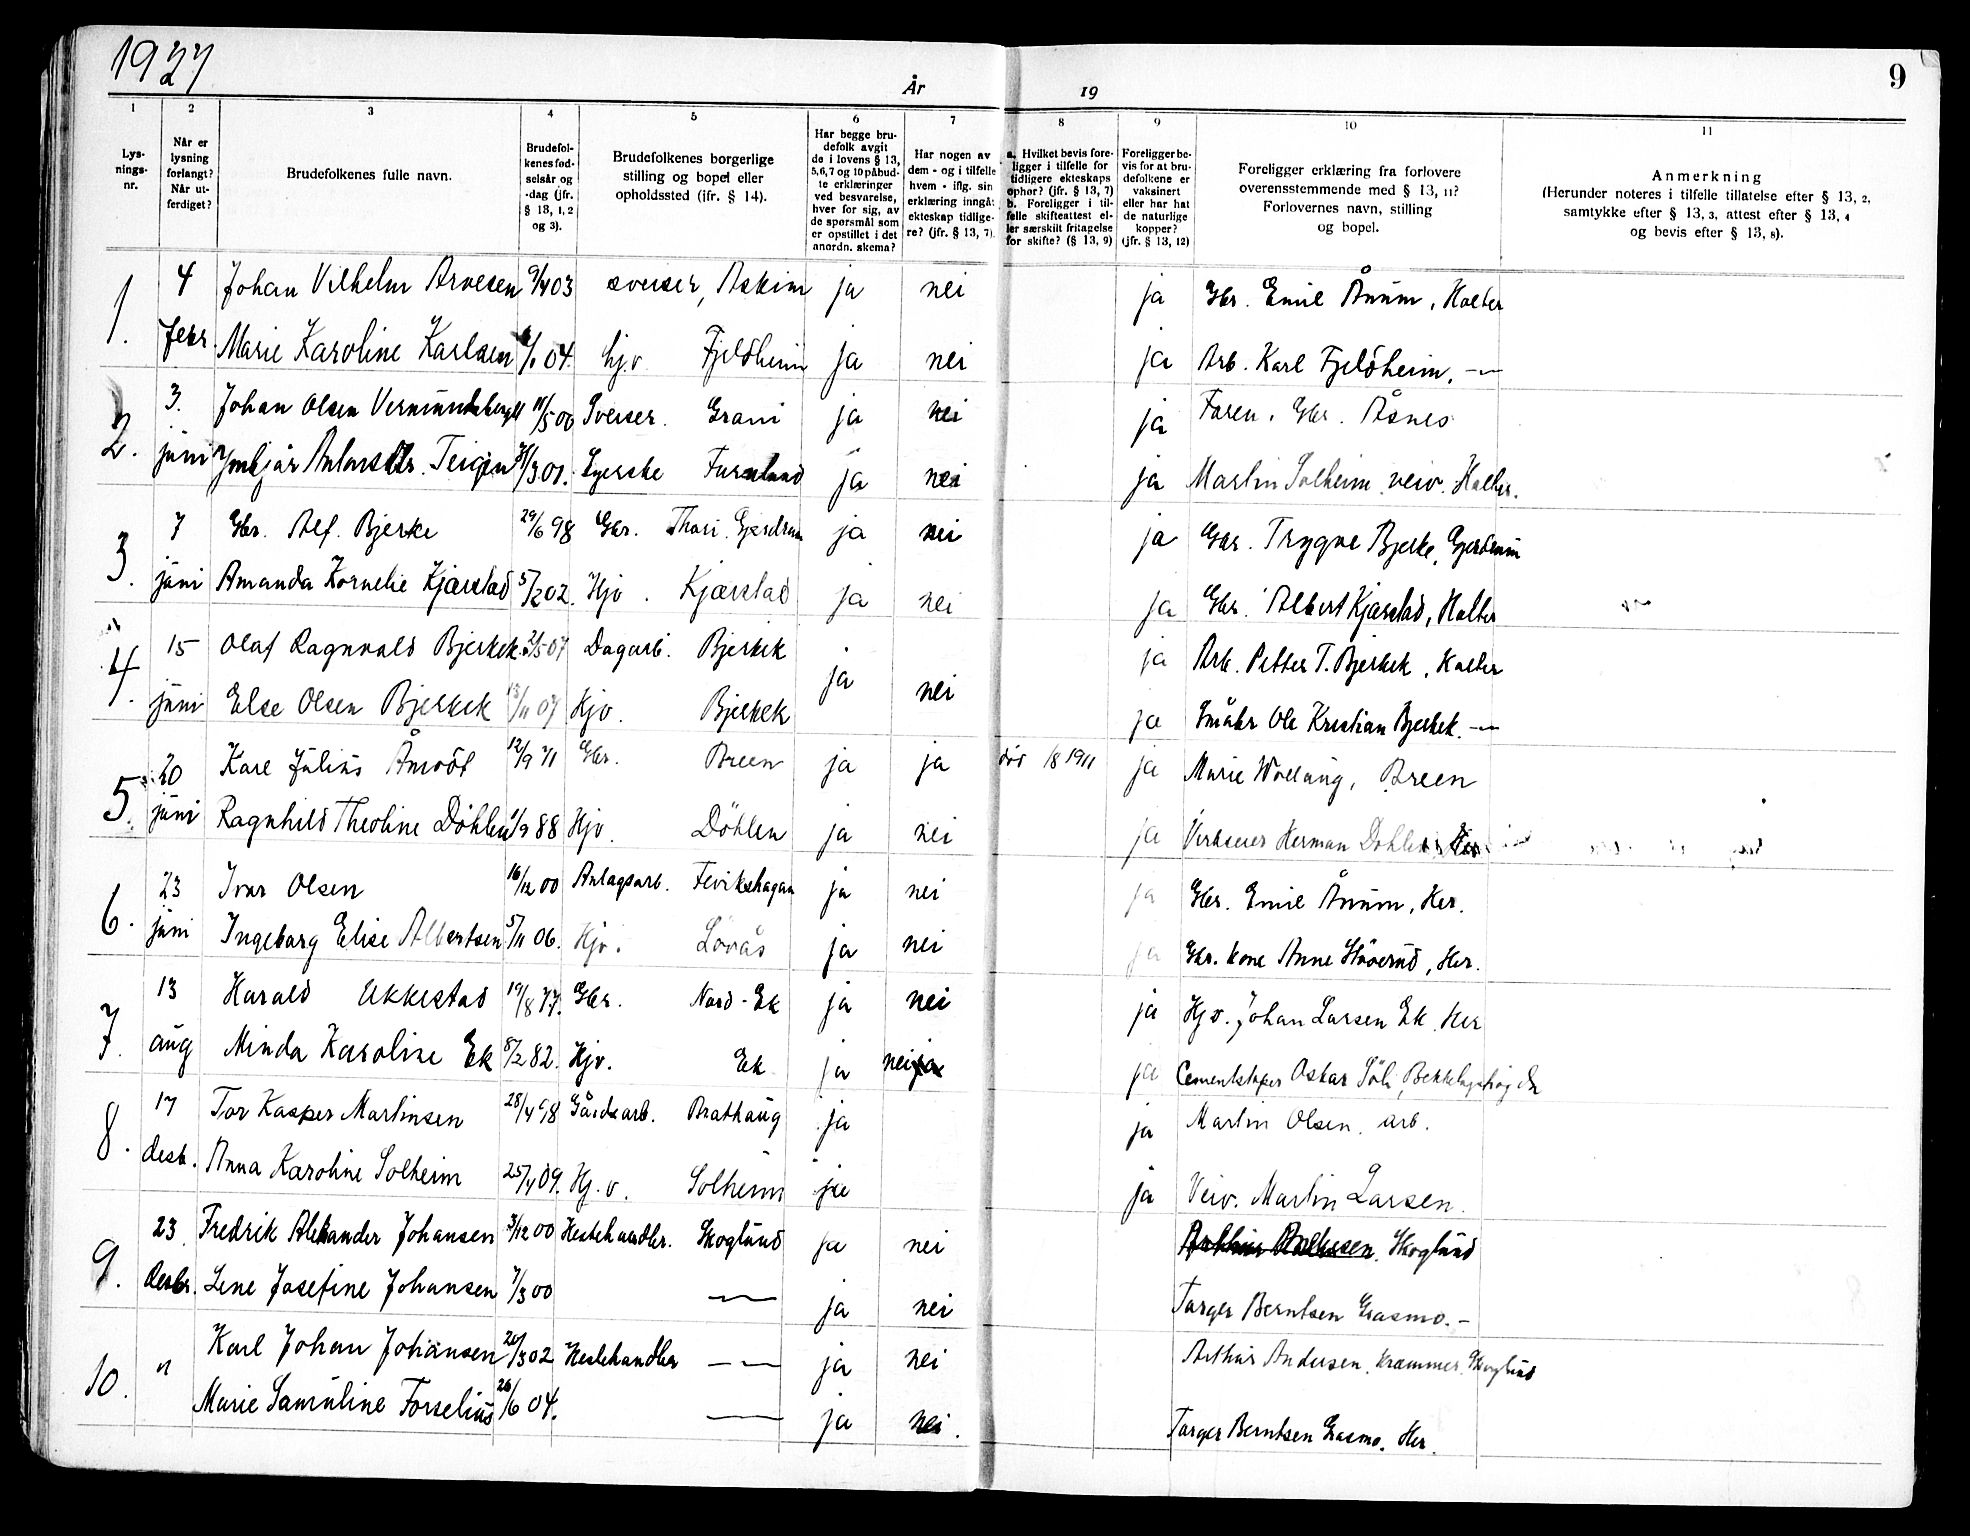 1927
År
19
9
1
2
3
4
5
6
7
8
9
10
11
Lys-
nings-
nr.
Når er
lysning
forlangt?
Når ut-
ferdiget?
Brudefolkenes fulle navn.
Brudefol-
kenes fød-
selsår og
-dag (jfr.
§ 13, 1, 2
og 3).
Brudefolkenes borgerlige
stilling og bopel eller
opholdssted (ifr. § 14).
Har begge bru-
defolk avgit
de i lovens § 13,
5,6,7 og 10 påbud-
te erklæringer
ved besvarelse,
hver for sig, av
de spørsmål som
er opstillet i det
anordn. skema?
Har nogen av
dem - og i tilfelle
hvem - iflg. sin
erklæring inngåt
ekteskap tidlige-
re? (jfr. § 13, 7).
a. Hvilket bevis fore-
ligger i tilfelle for
tidligere ekteskaps
ophør? (jfr. § 13, 7)
b. Foreligger i til-
felle skifteattest el-
ler særskilt fritagelse
for skifte? (§ 13, 9)
Foreligger be-
vis for at bru-
defolkene er
vaksinert
eller har hat
de naturlige
kopper?
(jfr. § 13, 12)
Foreligger erklæring fra forlovere
overensstemmende med § 13, 11?
Forlovernes navn, stilling
og bopel.
Anmerkning
(Herunder noteres i tilfelle tillatelse efter § 13, 2,
samtykke efter § 13, 3, attest efter § 13, 4
og bevis efter § 13, 8).
1. 4 Johan Vilhelm Arnesen 9/4 03 sveiser, Askim ja nei ja Gbr. Emil Ånum, Holter
febr. Marie Karoline Karlsen 04. hj.v Fjeldheim ja nei ja Arb. Karl Fjeldheim, —"—
2. 3. Johan Olsen Vermundsberget 11/5 06 Sveiser. Grani ja nei ja Faren, Gbr. Åsnes
juni Antonsdtr. Teigen 31/3 01. Syerske Furulund ja nei ja Martin Solheim veiv. Holter.
3. 7 Gbr. Alf. Bjerke 29/6 98 Gbr. Gjerdrum ja nei ja Gbr. Trygve Bjerke, Gjerdrum
juni Amanda Kornelie Kjærstad 5/2 02. Hjv. Kjærstad ja nei ja Gbr. Albert Kjærstad, Holter
4. 15 Olaf Ragnvald Bjerkek 21/5 07 Dagarb. Bjerkek ja nei ja Arb. Petter T. Bjerkek, Holter
juni Else Olsen Bjerkek 13/11 07 Hjv. Bjerkek ja Småbr Ole Kristian Bjerkek. —"—
5. 20 Karl Julius Åmodt 12/9 71 Gbr. Breen ja ja død 1/8 1911 ja Marie Wollaug, Breen
juni Ragnhild Theoline Döhlen 1/9 88 Hjv. Döhlen ja nei ja Verkseier Herman Döhlen, Her
6. 23 Ivar Olsen 16/12 00 Anlagsarb. Flvikshagan ja nei ja Gbr. Emil Ånum, Her.
juni Ingeborg Elise Albertsen 5/11 06. Hjv. Lövås ja nei ja Gbr. kone Anne Stöverud, Her.
7. 13 Harald Ekkestad 19/8 77. Gbr. Nord-Ek ja nei ja Hjv. Johan Larsen Ek. Her
aug Minda Karoline Ek 8/2 82. Hjv. Ek ja nei ja ja Cementstøper Oskar Söli, Bekkelagshøgda
8. 17 Tor Kasper Martinsen 28/4 98 Gårdsarb. Brathaug ja ja Martin Olsen. arb.
desb. Anna Karoline Solheim 25/4 09. Hj.v. Solheim ja ja Veiv. Martin Larsen.
9. 23 Fredrik Aleksander Johansen 3/12 00 Hestehandler. Skoglund ja nei Skoglund
desbr. Lene Josefine Johansen 7/3 00 —"— ja nei Torger Berntsen Grasmo. —
10. " Karl Johan Johansen 20/3 02 Hestehandler —"— ja nei Arthur Andersen, kræmmer. Skoglund
Marie Samuline Forselius 26/6 04. —"— ja nei. Torger Berntsen Grasmo. Her.